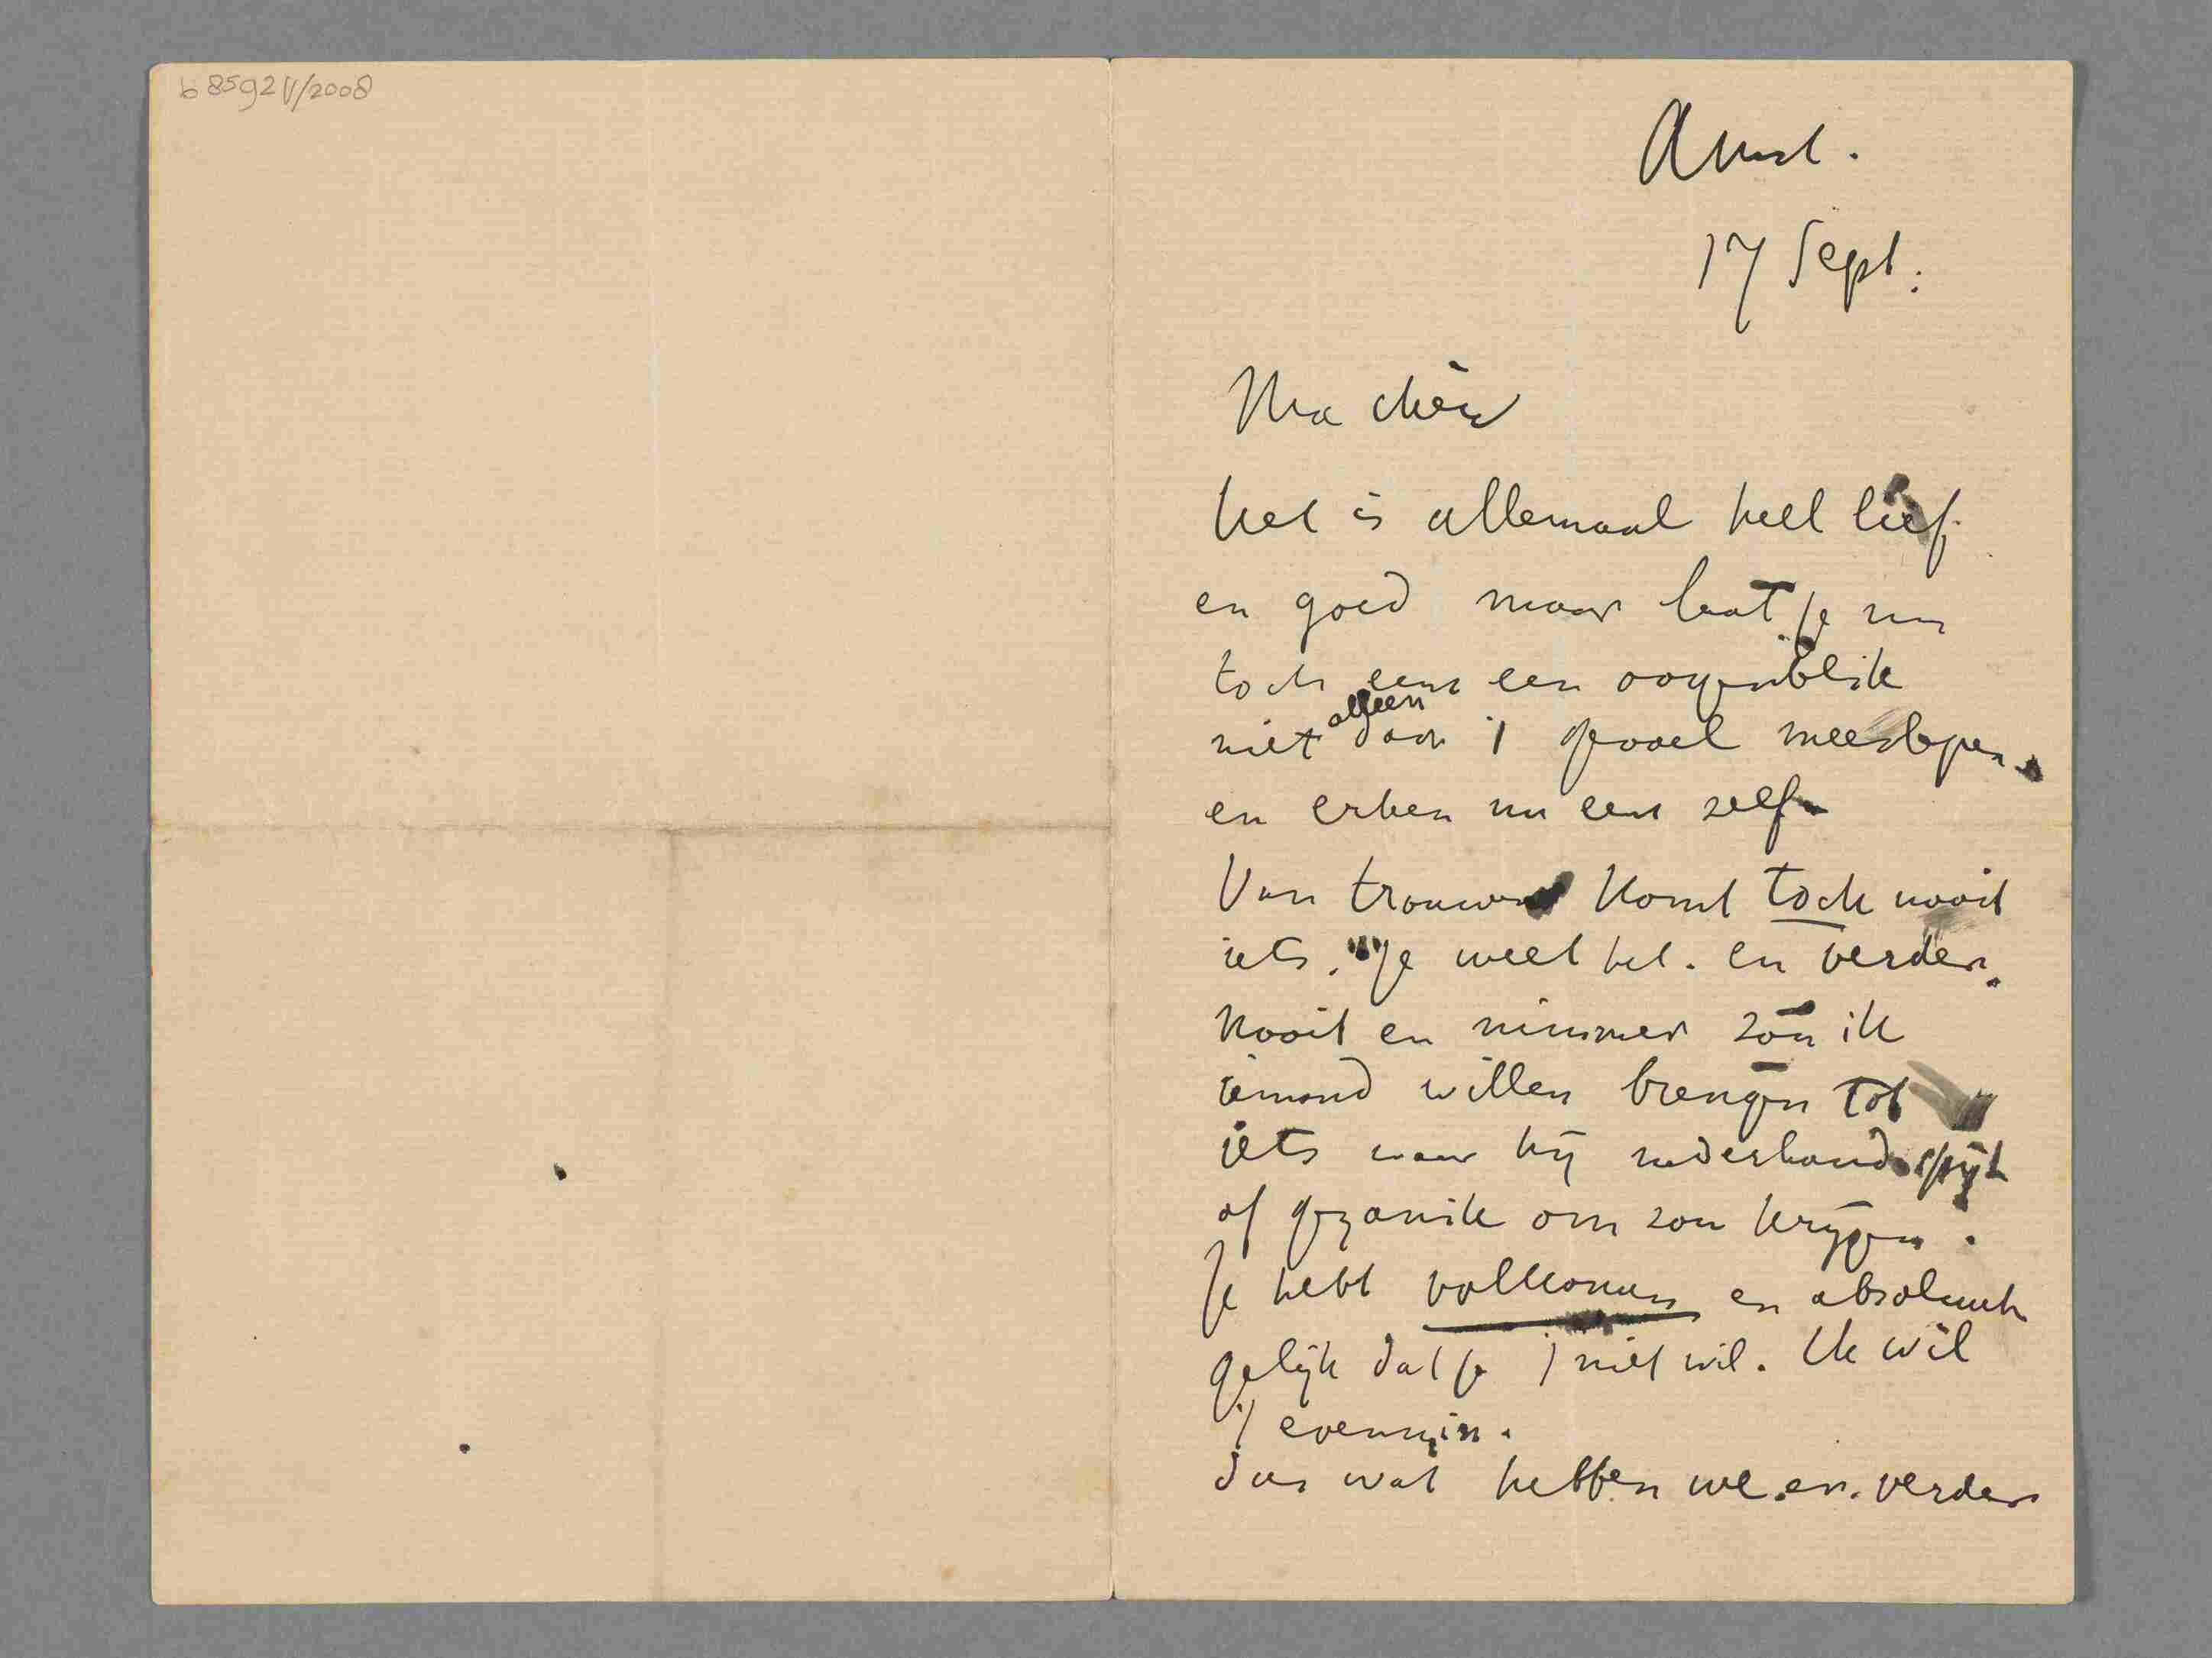 b 8592 V/2008
Amst.
17 Sept.
Ma chère
het is allemaal heel lief
en goed maar laat je nu
toch eens een oogenblik
niet alleen door 't gevoel meeslepen.
en erken nu eens zelf
Van trouwen komt toch nooit
iets. Je weet het. en verder.
Nooit en nimmer zou ik
iemand willen brengen tot
iets waar hij naderhand spijt
of gezanik om zou krijgen.
Je hebt volkomen en absoluut
gelijk dat je 't niet wil. Ik wil
't evenmin.
dus wat hebben we er verder